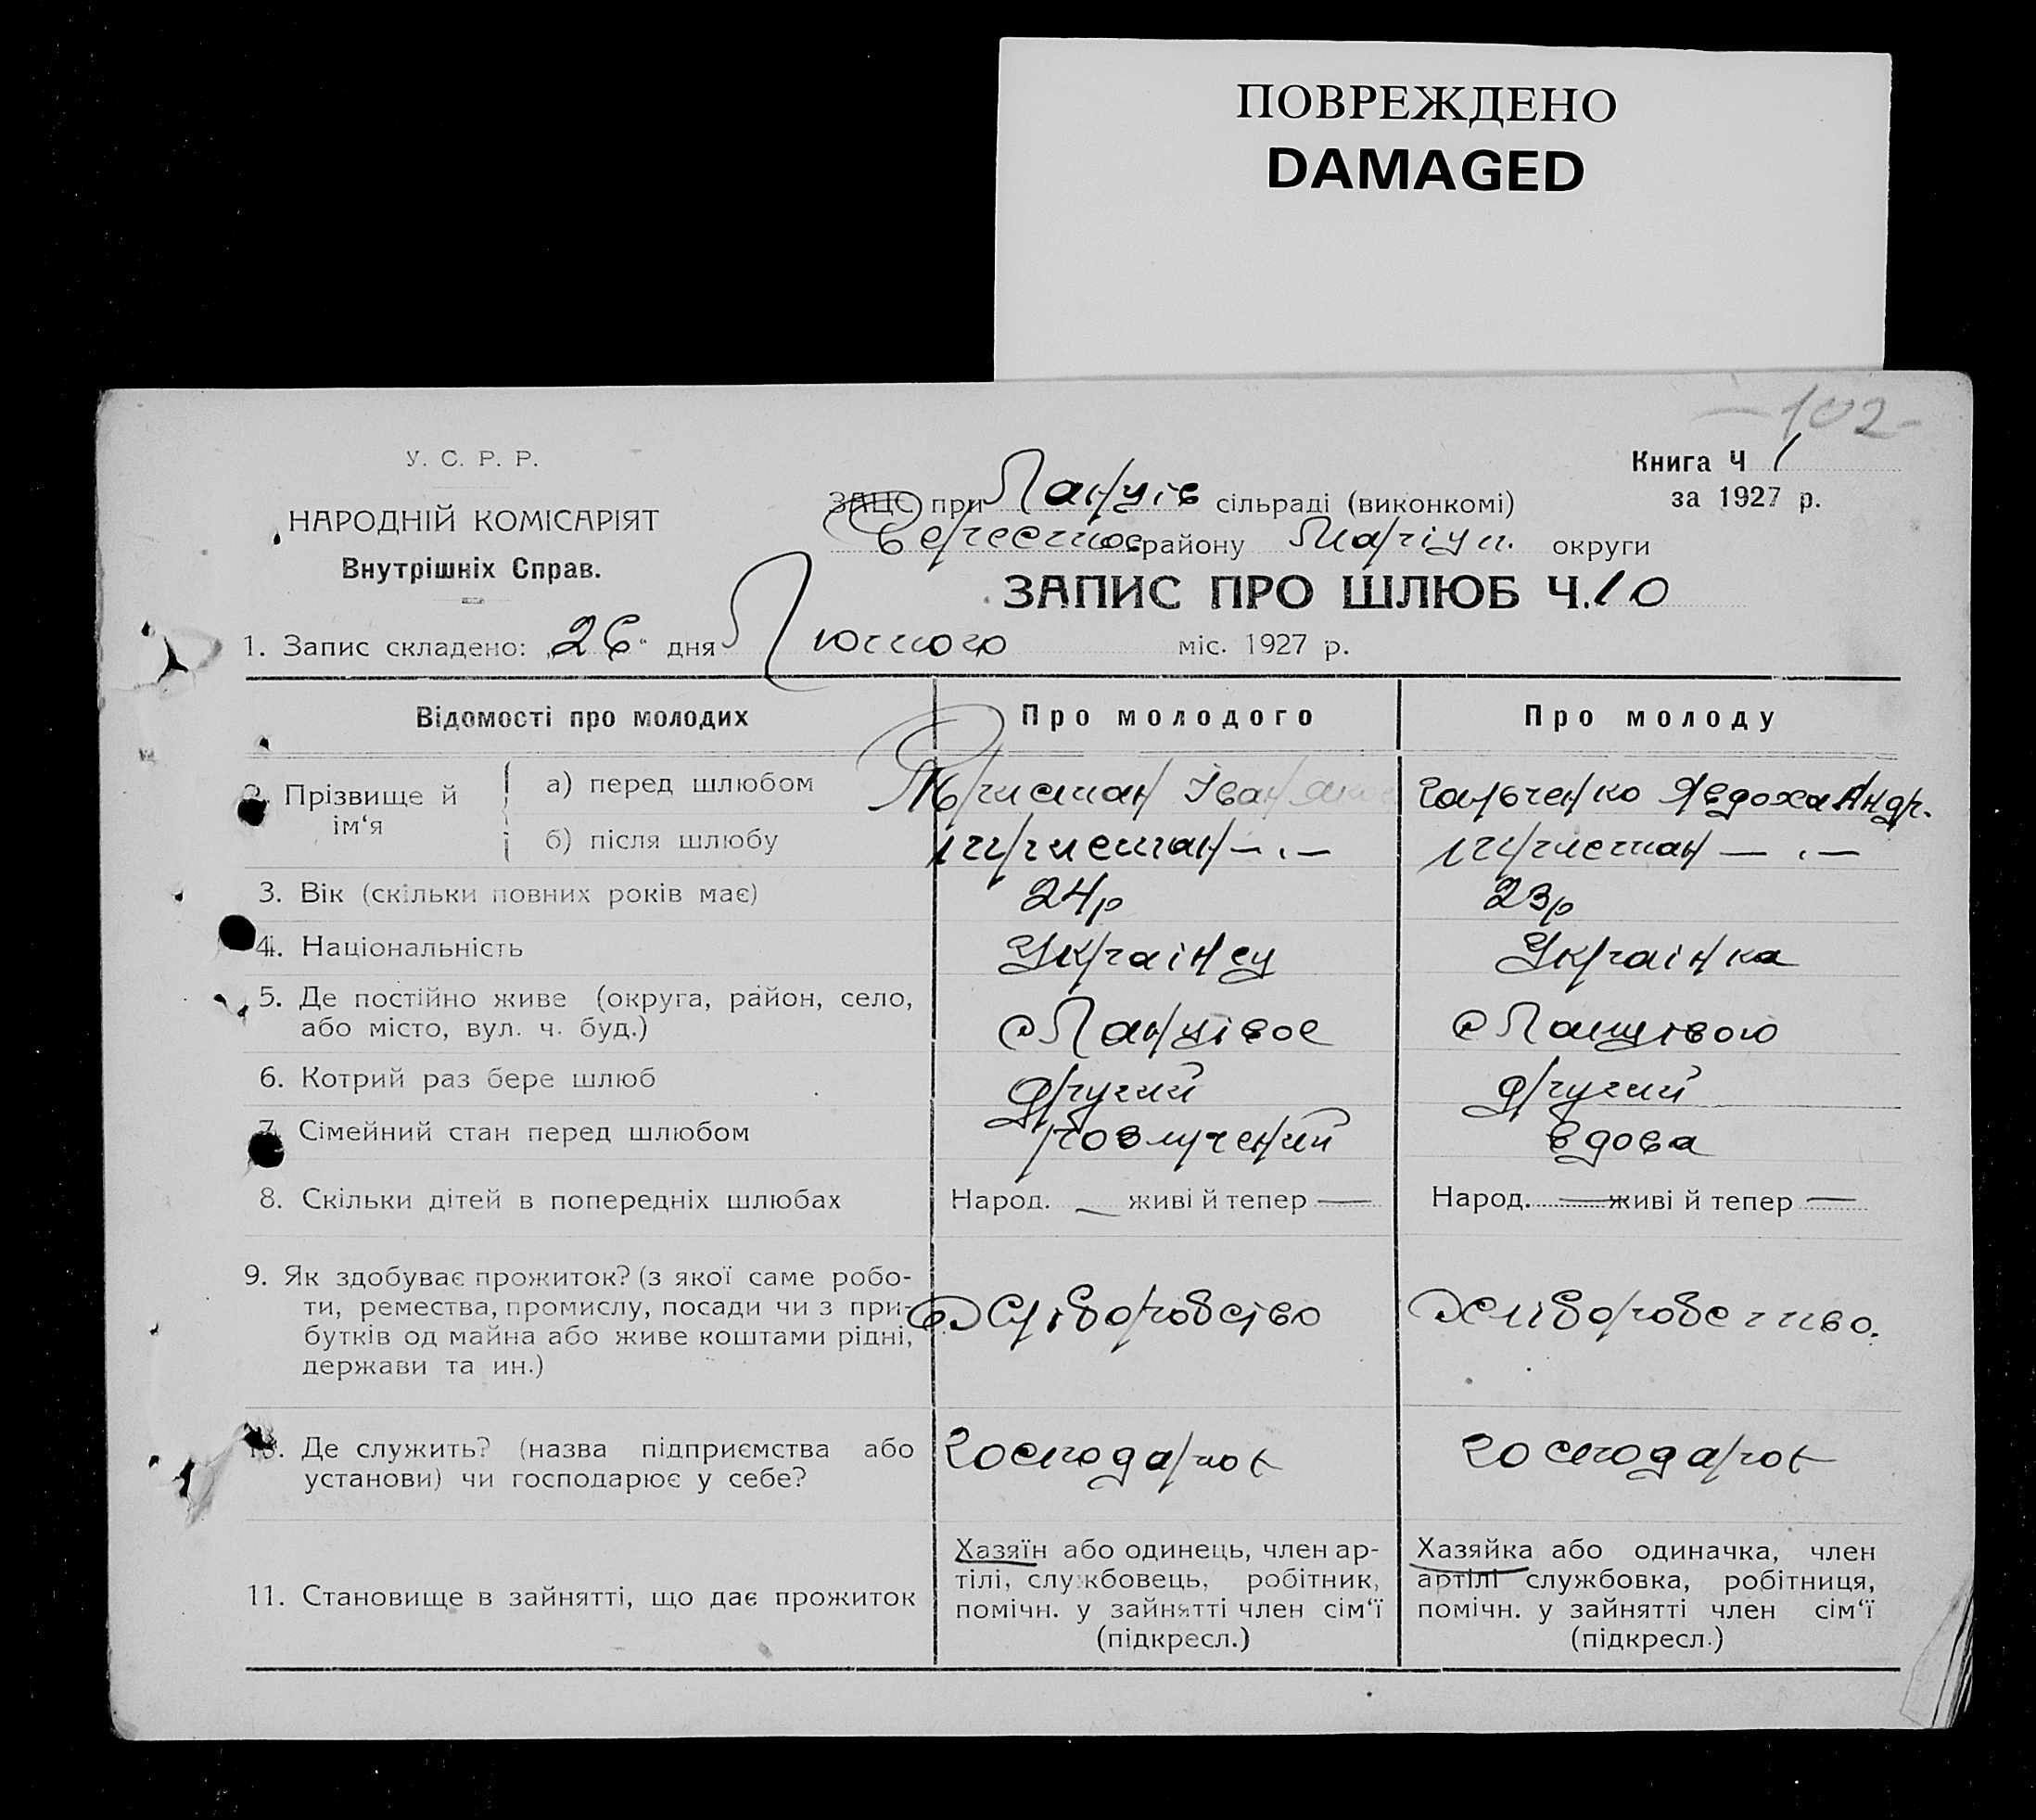 ПОВРЕЖДЕНО
DAMAGED
-102-
У. С. Р. Р.
НАРОДНІЙ КОМІСАРІЯТ
Внутрішніх Справ.
Книга Ч 1
за 1927 р.
ЗАЦС при Ланців сільраді (виконкомі)
району Маріуп. округи
ЗАПИС ПРО ШЛЮБ Ч. 10
1. Запис складено: „26" дня Лютого міс. 1927 р.
Відомості про молодих
Про молодого
Про молоду
2. Прізвище й ім'я
а) перед шлюбом
Іван
Гальченко Явдоха Андр.
б) після шлюбу
— . —
— . —
3. Вік (скільки повних років має)
24р
23р
4. Національність
Українец
Українка
5. Де постійно живе (округа, район, село,
або місто, вул. ч. буд.)
с Ланцівое
с
6. Котрий раз бере шлюб
другий
другий
7. Сімейний стан перед шлюбом
розлучений
вдова
8. Скільки дітей в попередніх шлюбах
Народ. — живі й тепер —
Народ. — живі й тепер —
9. Як здобуває прожиток? (з якої саме робо-
ти, ремества, промислу, посади чи з при-
бутків од майна або живе коштами рідні,
держави та ин.)
хліборобство.
10. Де служить? (назва підприємства або
установи) чи господарює у себе?
господарює
господарює
11. Становище в зайнятті, що дає прожиток
Хазяїн або одинець, член ар-
тілі, службовець, робітник,
помічн. у зайнятті член сім'ї
(підкресл.)
Хазяйка або одиначка, член
артілі службовка, робітниця,
помічн. у зайнятті член сім'ї
(підкресл.)